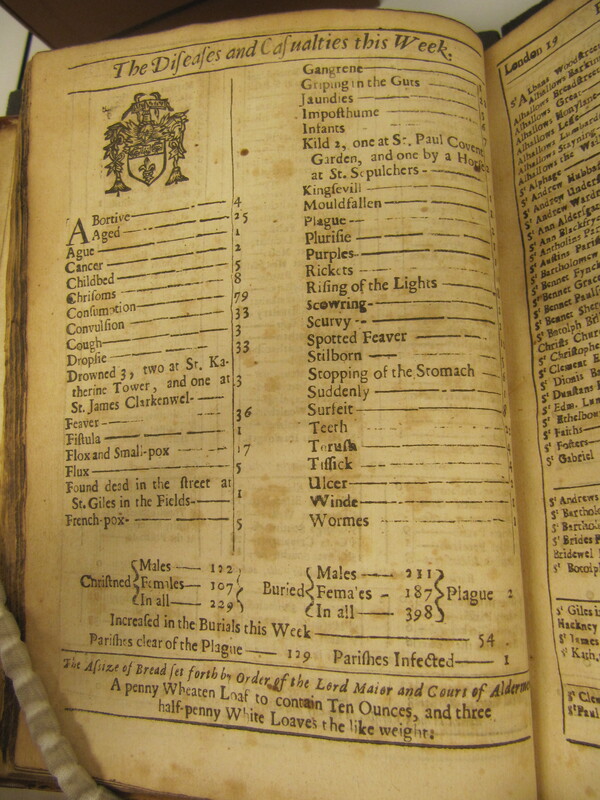 The Diſeaſes and Caſualties this Week.
Abortive 4
Aged 25
Ague 1
Cancer 2
Childbed 5
Chriſoms 8
Conſumption 79
Convulſion 33
Cough 3
Dropſie 33
Drowned 3, two at St. Ka-
therine Tower, and one at 3
St. James Clarkenwel-
Feaver 36
Fiſtula 1
Flox and Small-pox 17
Flux 5
Found dead in the ſtreet at
St. Giles in the Fields- 1
French-pox- 5
Gangrene
Griping in the Guts
Jaundies
Impoſthume
Infants
Kild 2, one at St. Paul Covent
Garden, and one by a Horſe
at St. Sepulchers -
Kingſevill
Mouldfallen
Plague
Pluriſie
Purples
Rickets
Riſing of the Lights
Scowring
Scurvy
Spotted Feaver
Stilborn
Stopping of the Stomach
Suddenly
Surfeit
Teeth
Tiſſick
Ulcer
Winde
Wormes
Chriſtned
Males 122
Females 107
In all 229
Buried
Males 211
Females 187
In all 398
Plague 2
Increaſed in the Burials this Week 54
Pariſhes clear of the Plague 129 Pariſhes Infected 1
The Aſſize of Bread ſet forth by Order of the Lord Maior and Court of Alderme
A penny Wheaten Loaf to contain Ten Ounces, and three
half-penny White Loaves the like weight.
London 19
St Albans Woodſtreet
Alhallows Barkin
Alhallows Breadſtree
Alhallows Great
Alhallows Honylane
Alhallows Leſſe
Alhallows Lumbard
Alhallows Stayning
Alhallows the Wal
St Alphage
St Andrew Hubba
St Andrew Underſ
St Andrew Wardr
St Ann Alderſga
St Ann Blackfrye
St Antholins Par
St Auſtins Pariſh
St Bartholomew
St Bennet Fynck
St Bennet Grace
St Bennet Pauls
St Bennet Sher
St Botolph Bil
Chriſts Church
St Chriſtophe
St Clement E
St Dionis Ba
St Dunſtans
St Edm. Lum
St Ethelbou
St Faiths
St Foſters
St Gabriel
St Andrews
St Bartholo
St Bartho
St Brides P
Bridewel
St Botolp
St Giles i
Hackney
St James
St Kath.
St Cle
St Paul